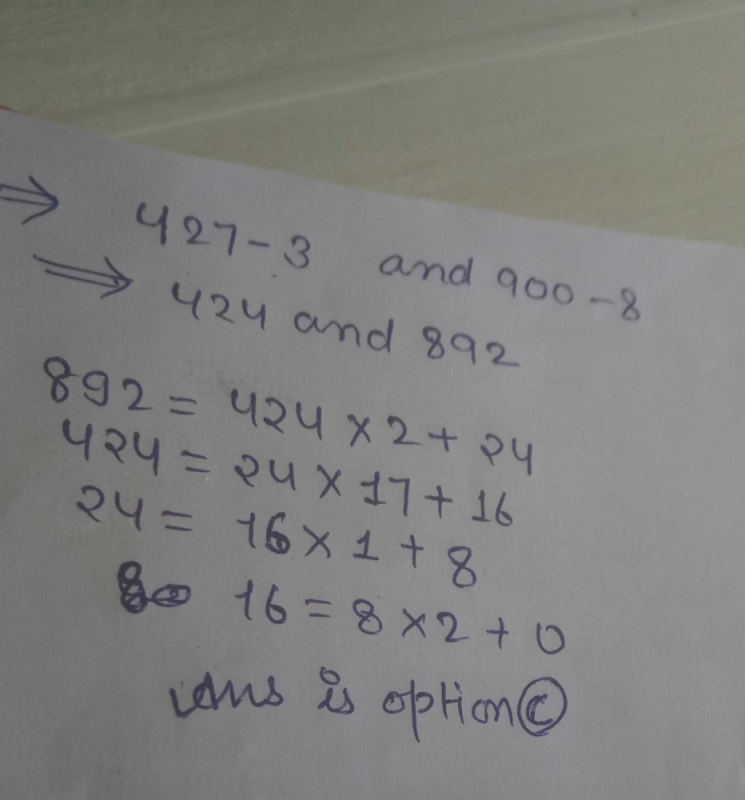 ⇒ 427-3 and 900-8
⇒ 424 and 892
892 = 424 × 2 + 24
424 = 24 × 17 + 16
24 = 16 × 1 + 8
16 = 8 × 2 + 0
Ans is option ©